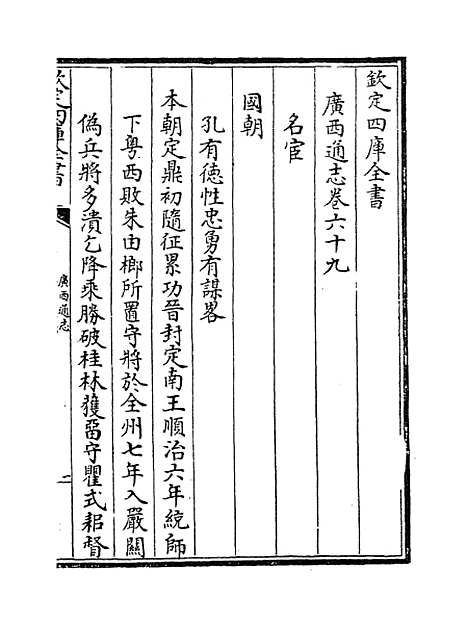 欽定四庫全書
廣西通志卷六十九
名宦
國朝
孔有德性忠勇有謀畧
本朝定鼎初隨征累功晉封定南王順治六年統師
下粤西敗朱由榔所置守將於全州七年入嚴關
偽兵將多潰乞降乘勝破桂林獲留守瞿式耜督
欽定四庫全書
廣西通志